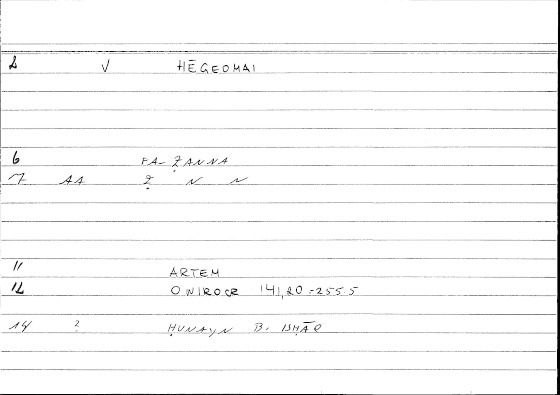 2 V HĒGEOMAI
6 FA-ẒANNA
7 AA Ẓ N N
11 ARTEM
12 ONIROCR 141,20 = 255.5
14 ? ḤUNAYN B. ISḤĀQ